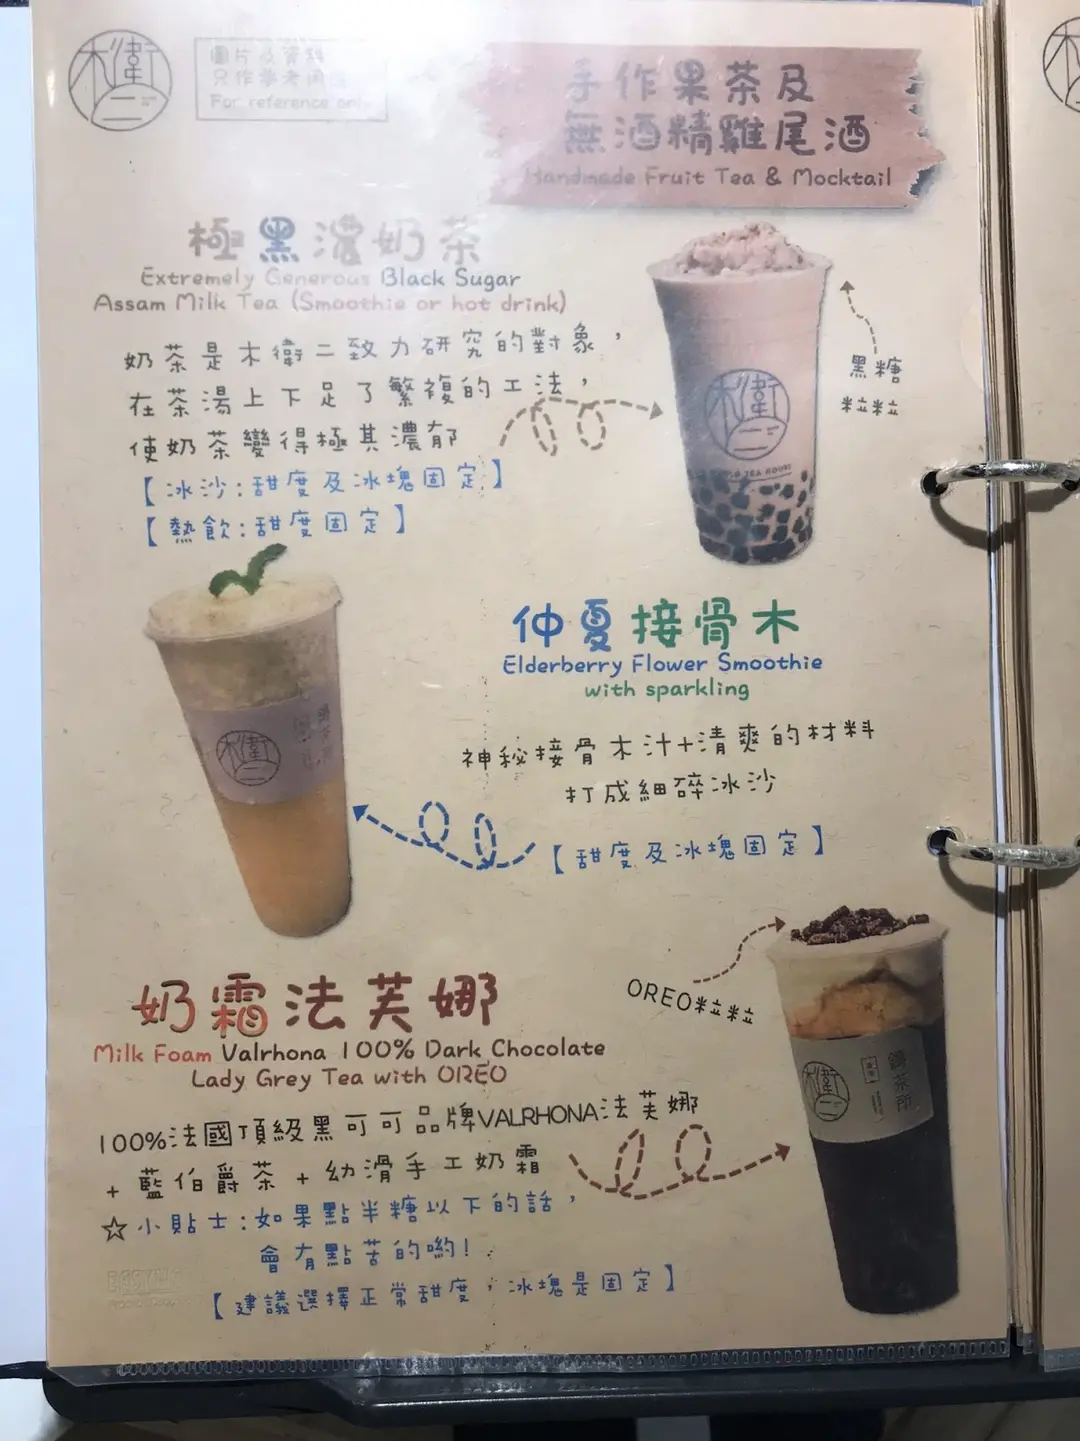 木衛二
圖片及資料
只作參考用途
For reference only
手作果茶及
無酒精雞尾酒
Handmade Fruit Tea & Mocktail
極黑濃奶茶
Extremely Generous Black Sugar
Assam Milk Tea (Smoothie or hot drink)
奶茶是木衛二致力研究的對象，
在茶湯上下足了繁複的工法，
使奶茶變得極其濃郁
【冰沙:甜度及冰塊固定】
【熱飲:甜度固定】
黑糖
粒粒
木衛二
TEA HOUSE
仲夏接骨木
Elderberry Flower Smoothie
with sparkling
神秘接骨木汁+清爽的材料
打成細碎冰沙
【甜度及冰塊固定】
木衛二
奶霜法芙娜
Milk Foam Valrhona 100% Dark Chocolate
Lady Grey Tea with OREO
OREO粒粒
100%法國頂級黑可可品牌VALRHONA法芙娜
+藍伯爵茶+幼滑手工奶霜
☆小貼士:如果點半糖以下的話，
會有點苦的喲!
【建議選擇正常甜度，冰塊是固定】
木衛二
茶所